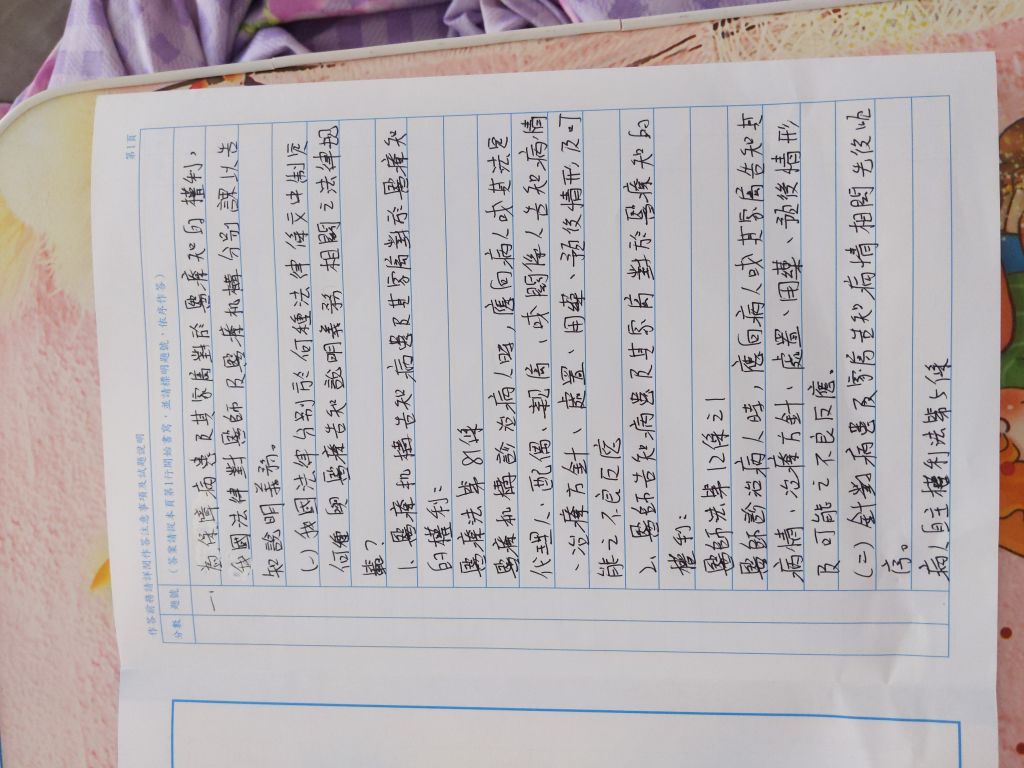 第1頁
作答前務請詳閱作答注意事項及試題說明
分數 題號 （答案請從本頁第1行開始書寫，並請標明題號，依序作答）
一、為保障病患及其家屬對於醫療知的權利，
我國法律對醫師及醫療机構分別課以告
知說明義務。
(一)我國法律分別於何種法律條文中制定
何種明醫療告知說明義務相關之法律規
範？
1、醫療机構告知病患及其家屬對於醫療知
的權利：
醫療法第81條
醫療机構診治病人時，應向病人或其法定
代理人、配偶、親屬、或關係人告知病情
、治療方針、處置、用藥、預後情形及可
能之不良反应
2、醫師告知病患及其家屬對於醫療知的
權利：
醫師法第12條之1
醫師診治病人時，應向病人或其家屬告知其
病情、治療方針、處置、用藥、預後情形
及可能之不良反應。
(二)針對病患及家屬告知病情相關先後順
序。
病人自主權利法第5條